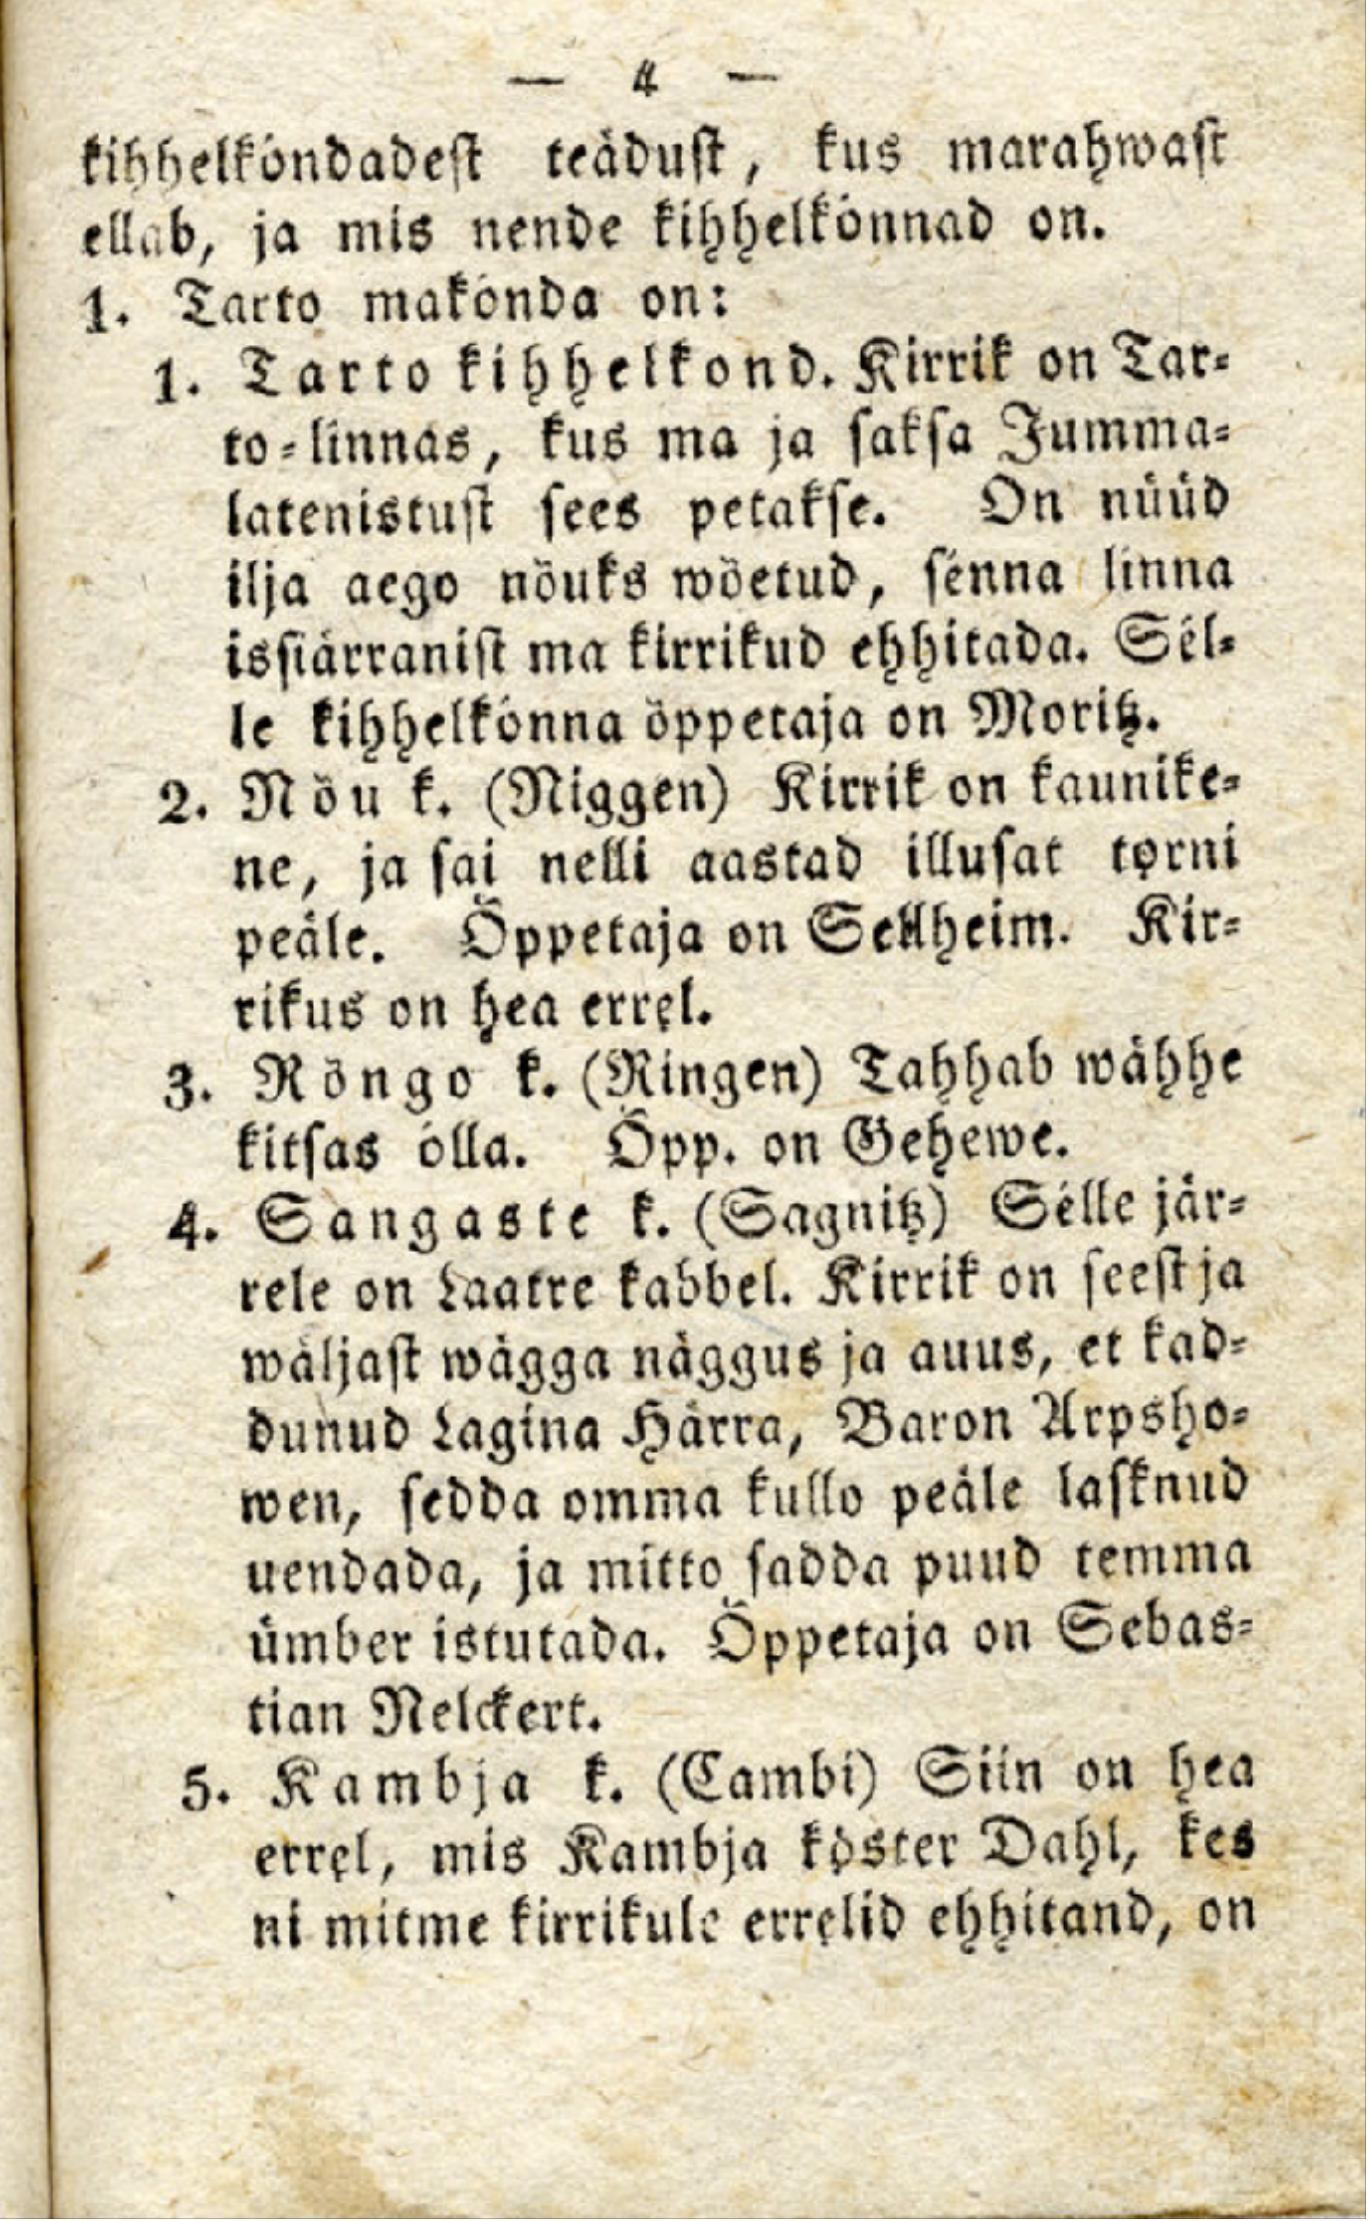 — 4 —
kihhelkóndadest teädust, kus marahwast
ellab, ja mis nende kihhelkónnad on.
1. Tarto makónda on:
1. Tarto kihhelkond. Kirrik on Tar-
to-linnas, kus ma ja saksa Jumma-
latenistust sees petakse. On nüüd
ilja aego nöuks wöetud, sénna linna
issiärranist ma kirrikud ehhitada. Sél-
le kihhelkónna öppetaja on Moritz.
2. Nöu k. (Niggen) Kirrik on kaunike-
ne, ja sai nelli aastad illusat torni
peäle. Öppetaja on Sellheim. Kir-
rikus on hea errel.
3. Röngo k. (Ringen) Tahhab wähhe
kitsas ólla. Öpp. on Gehewe.
4. Sangaste k. (Sagnitz) Sélle jär-
rele on Laatre kabbel. Kirrik on seest ja
wäljast wägga näggus ja auus, et kad-
dunud Lagina Härra, Baron Arpsho-
wen, sedda omma kullo peäle lasknud
uendada, ja mitto sadda puud temma
ümber istutada. Öppetaja on Sebas-
tian Nelckert.
5. Kambja k. (Cambi) Siin on hea
errel, mis Kambja köster Dahl, kes
ni mitme kirrikule errelid ehhitand, on